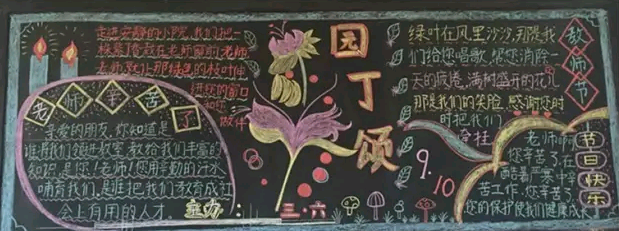 走进安静的小院,我们把一
株紫丁香栽在老师窗前,老师
老师,就让那绿色的枝叶伸
进您的窗口
和您
做伴
老师辛苦了
亲爱的朋友,你知道是
谁领我们领进教室,教给我们丰富的
知识,是您!老师!您用辛勤的汗水
哺育我们,是谁把我们教育成社
会上有用的人才。
主办:
三.六
园丁颂
绿叶在风里沙沙,那是我
们给您唱歌,帮您消除一
天的疲倦,满树盛开的花儿
那是我们的笑脸,感谢您时
时把我们
牵挂
教师节
9.10
老师啊
您辛苦了,在
酷暑严寒中辛
苦工作,您辛苦了
您的保护使我们健康成长
节日快乐